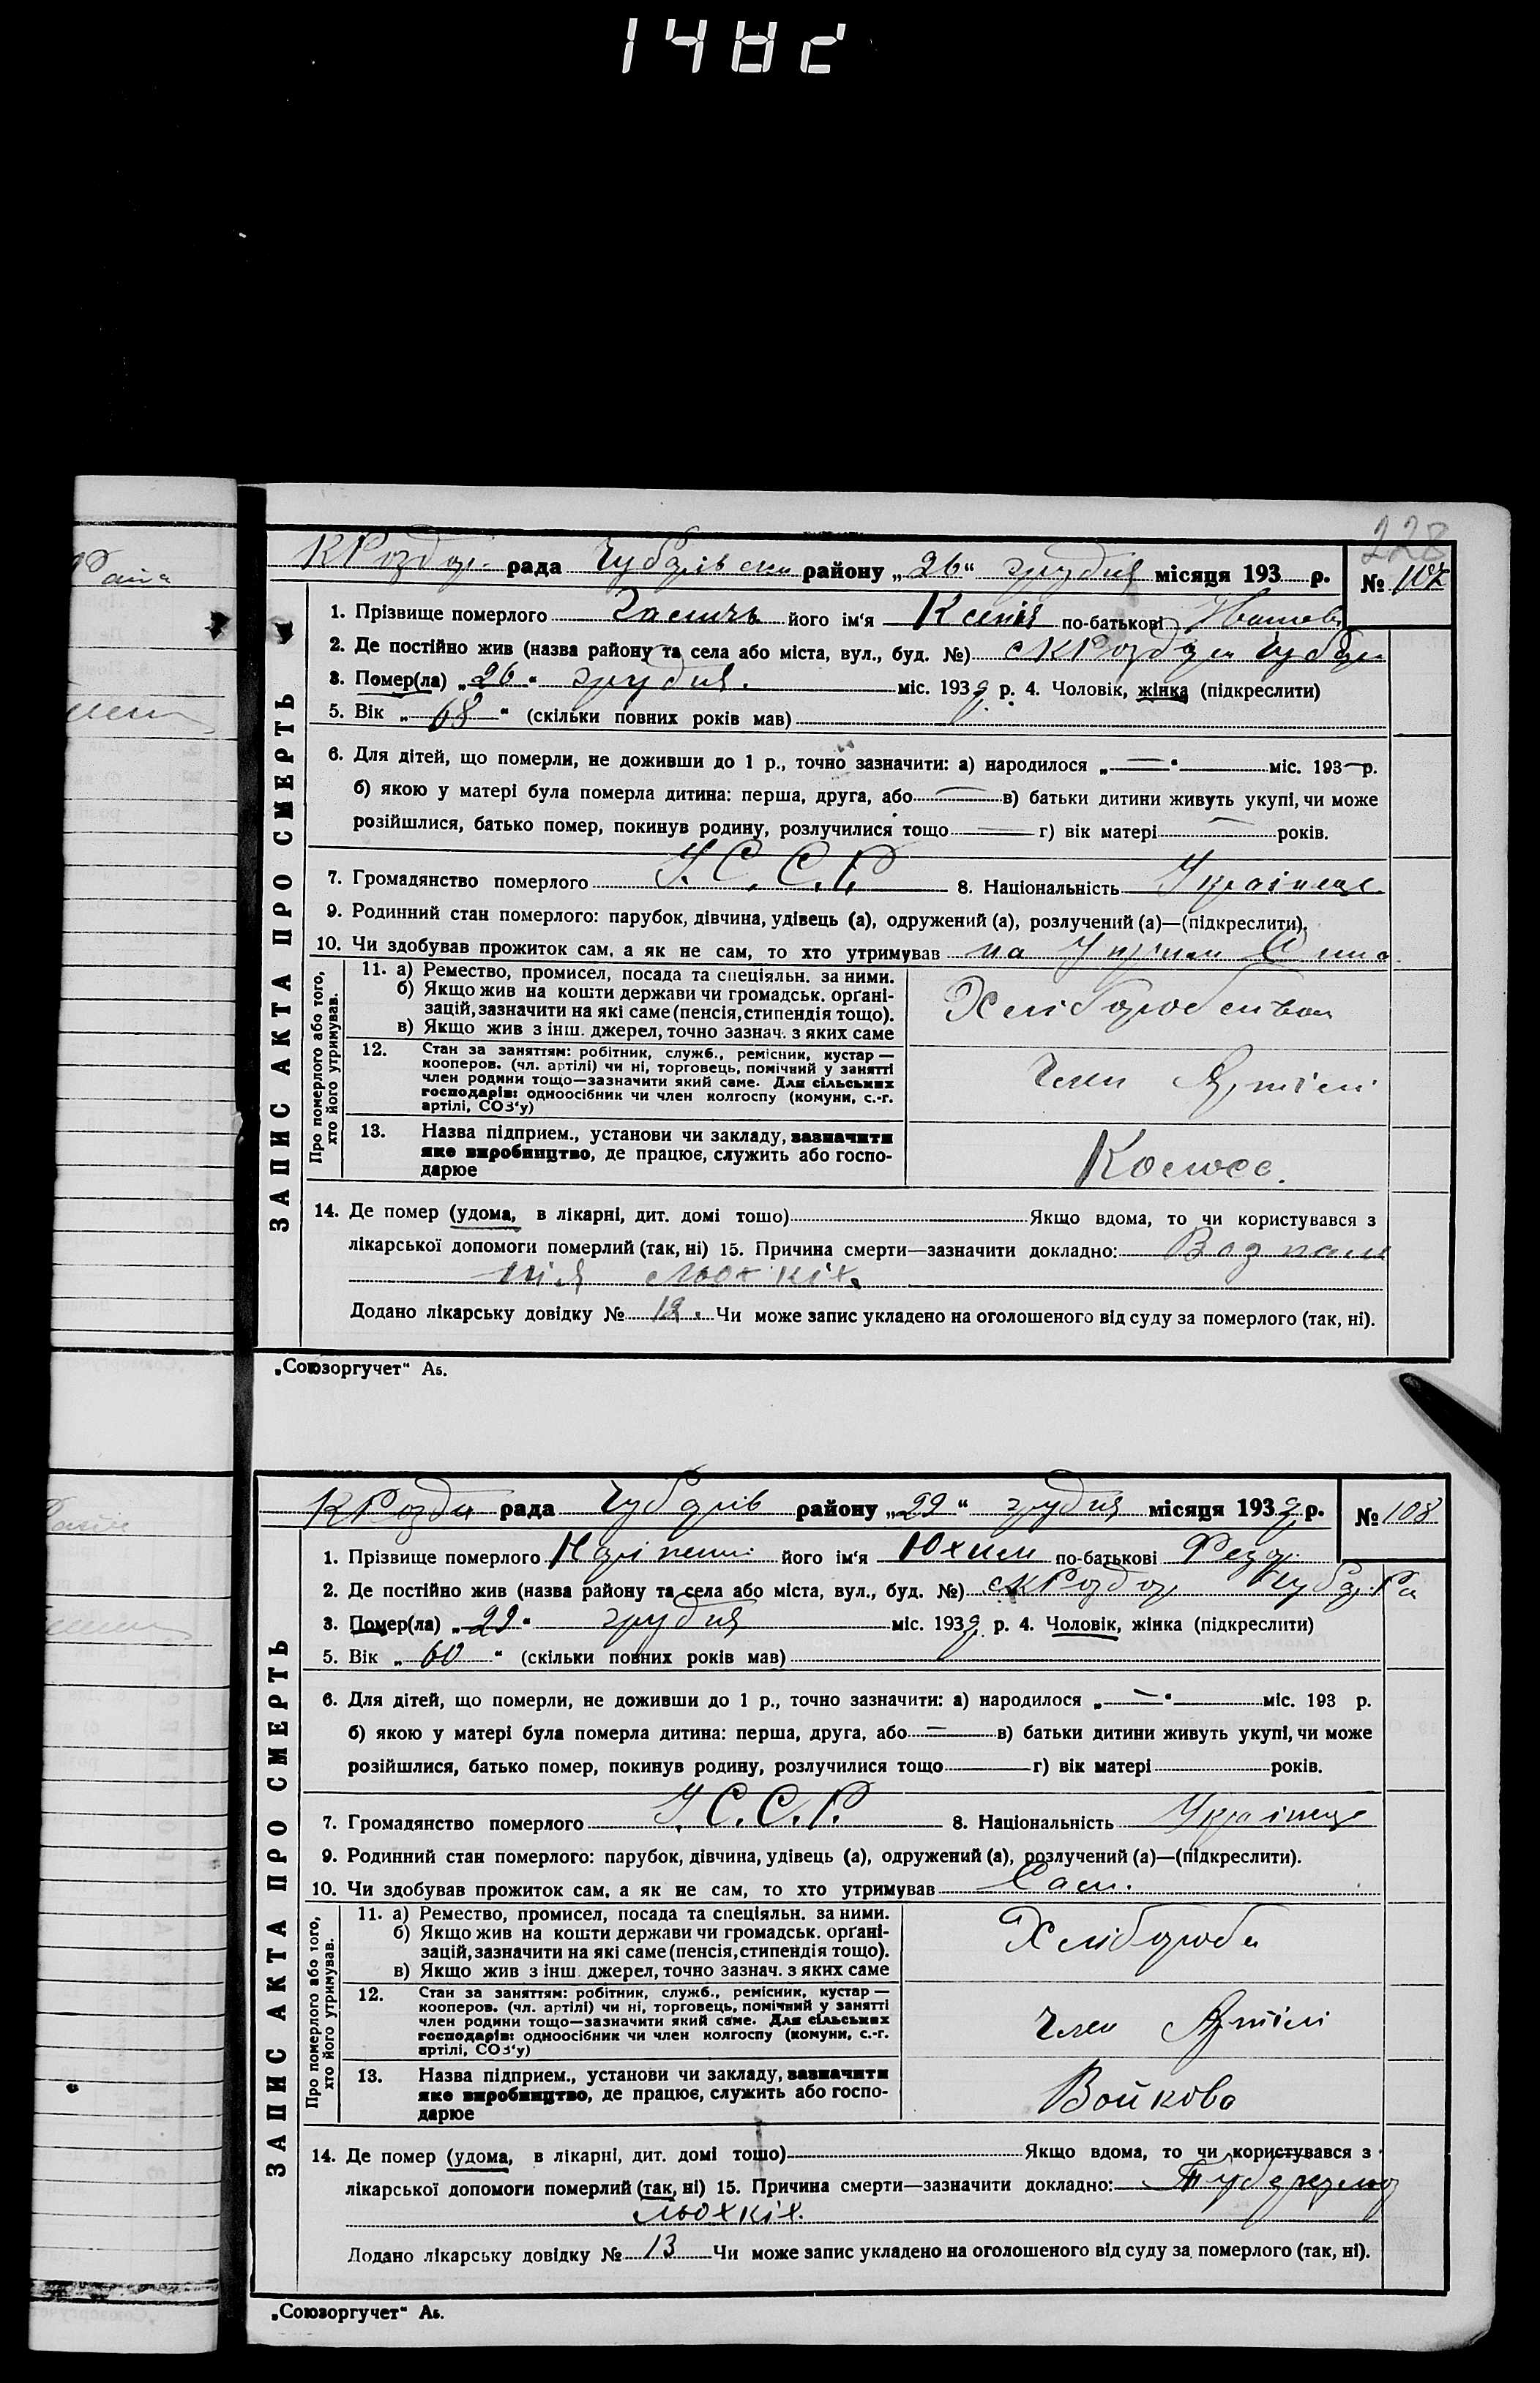 1482
228
КРоздор. рада Чубарівськ району „26“ грудня місяця 193 р. № 107
1. Прізвище померлого його ім'я Ксенія по-батькові Иванов
2. Де постійно жив (назва району та села або міста, вул., буд. №) с КРоздори Чубар
3. Помер(ла) „26“ грудня. міс. 1932 р. 4. Чоловік, жінка (підкреслити)
5. Вік „68“ (скільки повних років мав)
6. Для дітей, що померли, не доживши до 1 р., точно зазначити: а) народилося „—“ міс. 193— р.
б) якою у матері була померла дитина: перша, друга, або — в) батьки дитини живуть укупі, чи може
розійшлися, батько помер, покинув родину, розлучилися тощо — г) вік матері — років.
7. Громадянство померлого У.С.С.Р 8. Національність Українец
9. Родинний стан померлого: парубок, дівчина, удівець (а), одружений (а), розлучений (а)—(підкреслити).
10. Чи здобував прожиток сам, а як не сам, то хто утримував на
ЗАПИС АКТА ПРО СМЕРТЬ
Про померлого або того, хто його утримував.
11. а) Ремество, промисел, посада та спеціяльн. за ними.
б) Якщо жив на кошти держави чи громадськ. організацій, зазначити на які саме (пенсія, стипендія тощо).
в) Якщо жив з інш. джерел, точно зазнач. з яких саме
Хліборобство
12. Стан за заняттям: робітник, служб., ремісник, кустар —
кооперов. (чл. артілі) чи ні, торговець, помічний у занятті
член родини тощо—зазначити який саме. Для сільських
господарів: одноосібник чи член колгоспу (комуни, с.-г.
артілі, СОЗ'у)
Член Артілі
13. Назва підприєм., установи чи закладу, зазначити
яке виробництво, де працює, служить або госпо-
дарює
14. Де помер (удома, в лікарні, дит. домі тошо) Якщо вдома, то чи користувався з
лікарської допомоги померлий (так, ні) 15. Причина смерти—зазначити докладно: Возпале
нія льохкіх.
Додано лікарську довідку № 12. Чи може запис укладено на оголошеного від суду за померлого (так, ні).
„Союзоргучет“ А5.
КРозди рада Чубарів району „29“ грудня місяця 1932 р. № 108
1. Прізвище померлого його ім'я Юхим по-батькові Федор
2. Де постійно жив (назва району та села або міста, вул., буд. №) с КРоздор Чубар Ра
3. Помер(ла) „29“ грудня міс. 1932 р. 4. Чоловік, жінка (підкреслити)
5. Вік „60“ (скільки повних років мав)
6. Для дітей, що померли, не доживши до 1 р., точно зазначити: а) народилося „—“ міс. 193 р.
б) якою у матері була померла дитина: перша, друга, або — в) батьки дитини живуть укупі, чи може
розійшлися, батько помер, покинув родину, розлучилися тощо г) вік матері років.
7. Громадянство померлого У.С.С.Р. 8. Національність Українец
9. Родинний стан померлого: парубок, дівчина, удівець (а), одружений (а), розлучений (а)—(підкреслити).
10. Чи здобував прожиток сам, а як не сам, то хто утримував Сам.
ЗАПИС АКТА ПРО СМЕРТЬ
Про померлого або того, хто його утримував.
11. а) Ремество, промисел, посада та спеціяльн. за ними.
б) Якщо жив на кошти держави чи громадськ. організацій, зазначити на які саме (пенсія, стипендія тощо).
в) Якщо жив з інш. джерел, точно зазнач. з яких саме
Хлібороб
12. Стан за заняттям: робітник, служб., ремісник, кустар —
кооперов. (чл. артілі) чи ні, торговець, помічний у занятті
член родини тощо—зазначити який саме. Для сільських
господарів: одноосібник чи член колгоспу (комуни, с.-г.
артілі, СОЗ'у)
Член Артілі
13. Назва підприєм., установи чи закладу, зазначити
яке виробництво, де працює, служить або госпо-
дарює
Войкова
14. Де помер (удома, в лікарні, дит. домі тошо) Якщо вдома, то чи користувався з
лікарської допомоги померлий (так, ні) 15. Причина смерти—зазначити докладно: Туберкулоз
льохкіх.
Додано лікарську довідку № 13 Чи може запис укладено на оголошеного від суду за померлого (так, ні).
„Союзоргучет“ А5.